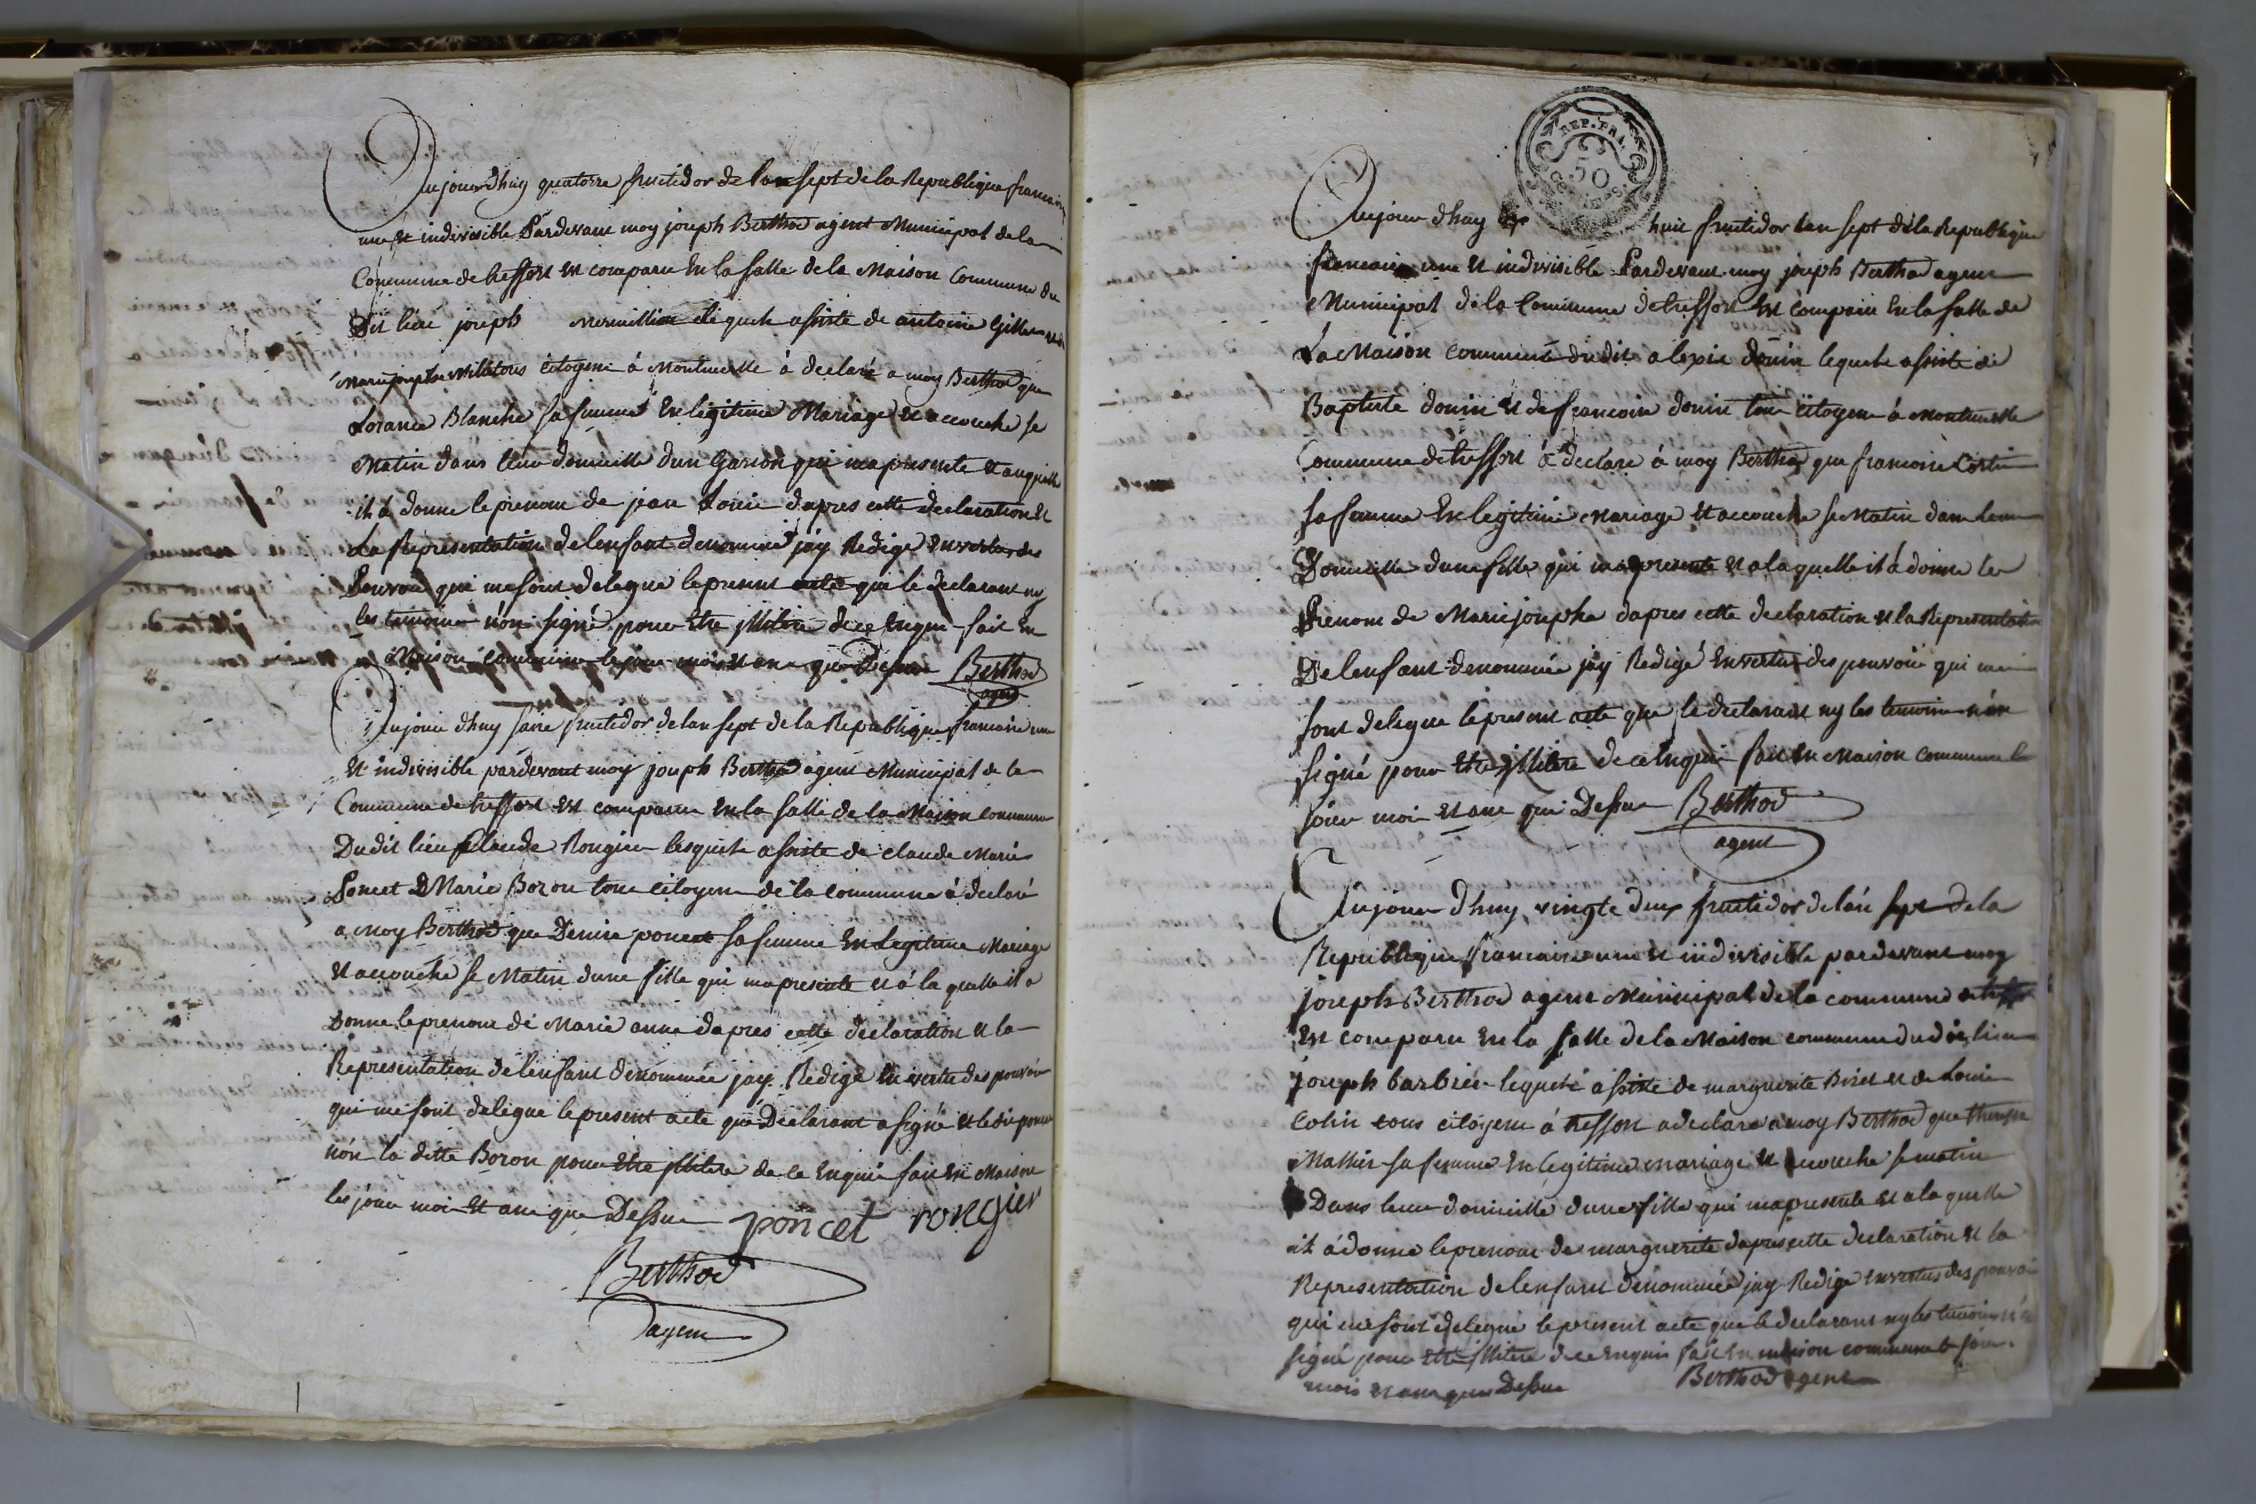 Aujourdhuy quatorze fructidor de lan sept de la Republique francaise
une et indivisible Pardevant moy joseph Berthod agent Municipal de la
Commune de tressort est comparu en la salle de la Maison Commune du
Dit lieu joseph vermillion lequele assiste de antoine
Marie josephe citoyens à Montmerle à declaré a moy Berthod que
Blanche sa femme en legitime Mariage et accouche se
Matin dans leur domicille dun Garson qui ma presente et auquelle
it à donne le prenom de jean Louis dapres cette declaration et
La Representation de lenfant denomme jay Redige en vertu des
Pouvoir qui me sont delegue le present acte que le declarant ny
les temoins nón signé pour etre jllitere de ce enquis fait en
Maison commune le jour mois et ans que Dessus Berthod
agent
Aujour dhuy saize fructidor de lan sept de la Republique francaise une
et indivisible pardevant moy joseph Berthod agent Municipal de la
Commune de tressort est comparu en la salle de la Maison commune
Dudit lieu Claude Rongier lesquele assiste de claude Marie
Poncet & Marie Bozon tous citoyens de la commune à declaré
a moy Berthod que Denise poncet sa femme en Legitime Mariage
et accouche se Matin dune fille qui ma presente et á la quelle it a
Donne le prenom de Marie anne dapres cette declaration et la
Representation de lenfant denommée jay Redige en vertu des pouvoir
qui me sont delegue le present acte que Declarant a signé et ledit poncet
nón la ditte Bozon pour etre jllitere de ce enquis fait en Maison
les jour mois et ans que Dessus poncet rongier
Berthod
agent
REP. FRA.
50
Aujour dhuy dix huit fructidor lan sept de la Republique
francaise une et indivisible Pardevant moy joseph Berthod agent
Municipal de la Commune de tressort est comparu en la salle de
La Maison commune dudit alexis donin lequele assiste de
Baptiste donin et de francois donin tous citoyens à Montmerle
Commune de tressort à declare à moy Berthod que francoise
sa femme en legitime Mariage et accouche se Matin dans leur
Domicille dune fille qui ma presente et a la quelle it à donne le
Prenom de Marie josephe dapres cette declaration et la Representation
De lenfant denommée jay Redigé en vertu des pouvoir qui me
sont delegue le present acte que le declarant ny les temoins nón
signé pour etre jllitere de ce enquis fait en Maison commune le
jour mois et ans que Dessus Berthod
agent
Aujour dhuy vingte deux fructidor de lan sept de la
Republique francaise une et indivisible pardevant moy
joseph Berthod agent Municipal de la commune de
est comparu en la salle de la Maison commune dudit lieu
joseph barbier lequele assiste de marguerite et de Louis
Colin tous citoyens à tressort a declare a moy Berthod que therese
Mathis sa femme en legitime mariage et accouche se matin
Dans leur domicille dune fille qui ma presente et a la quelle
it à donne le prenom de marguerite dapres cette declaration et la
Representation de lenfant denommée jay Redige en vertu des pouvoir
qui me sont delegue le present acte que le declarant ny les temoins
signé pour etre jllitere de ce enquis fait en maison commune le jour
mois et ans que Dessus Berthod agent